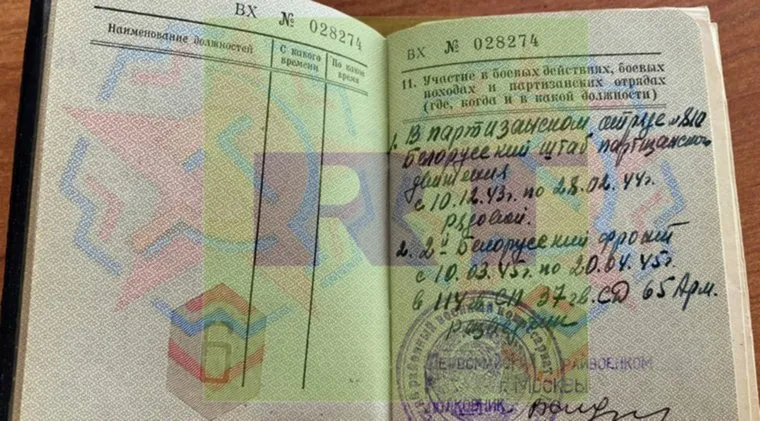 ВХ № 028274
Наименование должностей
С какого времени
По какое время
ВХ № 028274
11. Участие в боевых действиях, боевых
походах и партизанских отрядах
(где, когда и в какой должности)
1. В партизанском
Белорусский штаб партизанского
движения
с 10.12.43г. по 28.02.44г.
рядовой.
2. 2й Белорусский фронт
с 10.03.45г. по 20.04.45г.
в 114 гв. СП 37 гв. СД 65 Арм.
разведчик
районный военный комиссариат
РАЙВОЕНКОМ
Г. МОСКВЫ
ПОЛКОВНИК